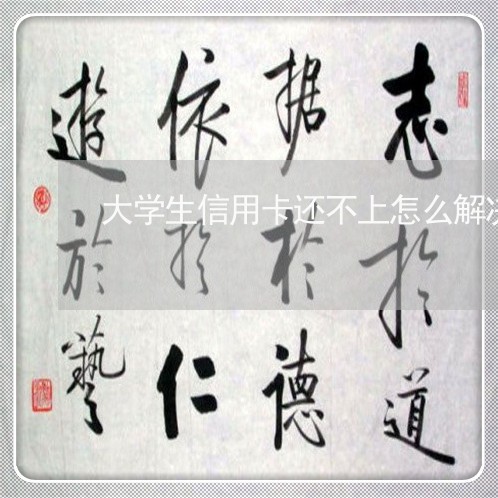 志於道
据於德
依於仁
遊於藝
大学生信用卡还不上怎么解决